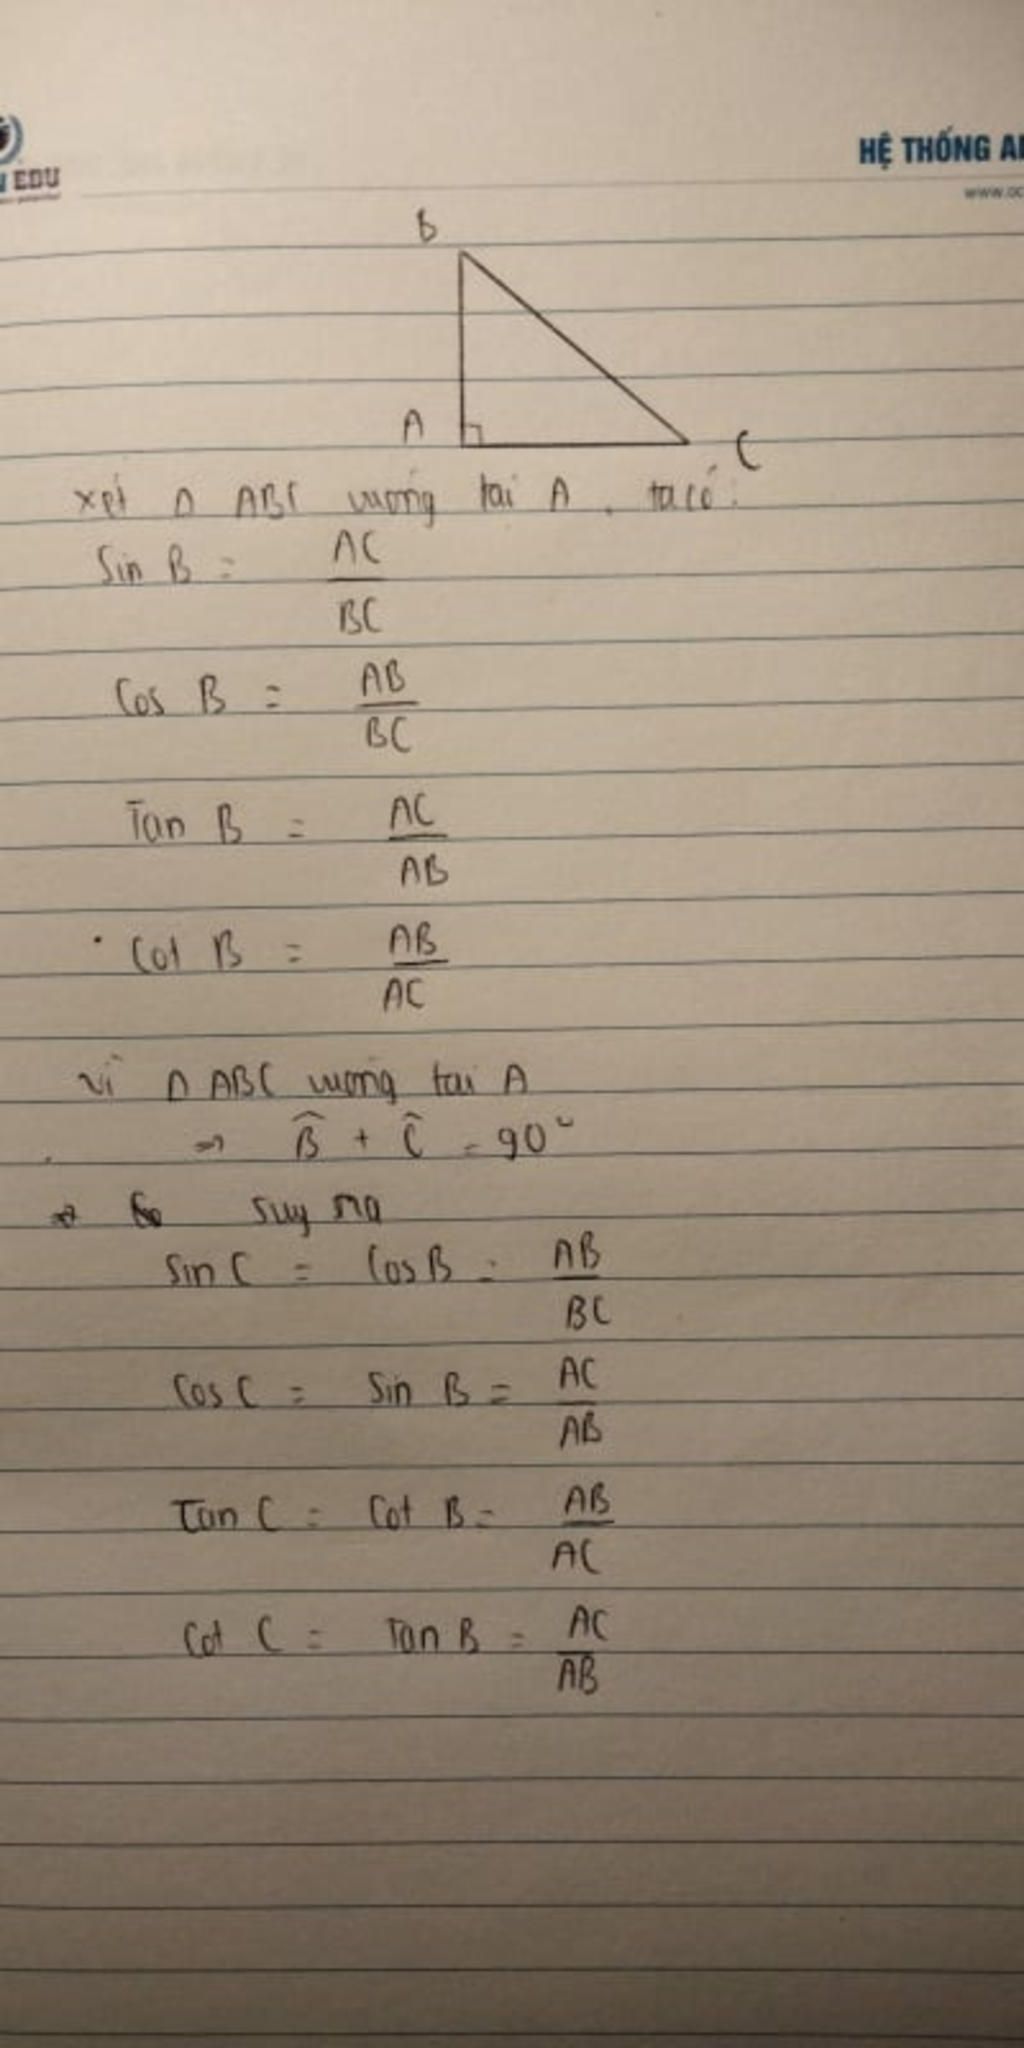 EDU
HỆ THỐNG
www.oc
B
A
C
xét Δ ABC vuông tại A, ta có:
Sin B = AC
BC
Cos B = AB
BC
Tan B = AC
AB
Cot B = AB
AC
Vì Δ ABC vuông tại A
⇒ B̂ + Ĉ = 90°
suy ra
Sin C = Cos B = AB
BC
Cos C = Sin B = AC
AB
Tan C = Cot B = AB
AC
Cot C = Tan B = AC
AB